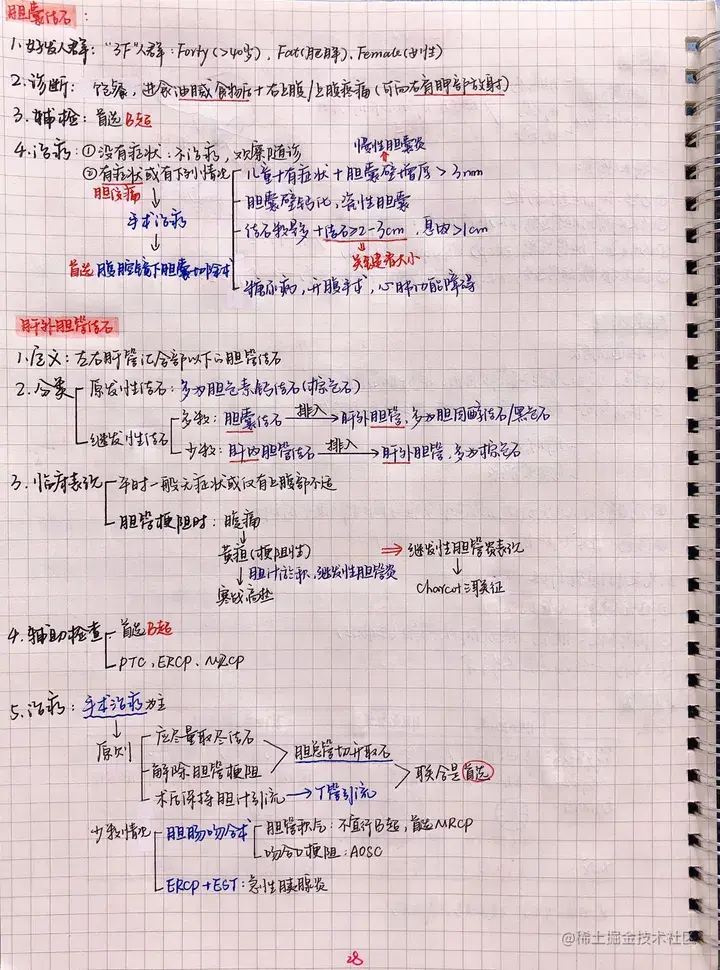 胆囊结石:
1.好发人群: "3F"人群: Forty(>40岁), Fat(肥胖), Female(女性)
2.诊断: 饱餐, 进食油腻食物后+右上腹/上腹疼痛(可向右肩胛部放射)
3.辅检: 首选B超
4.治疗: ①没有症状: 不治疗, 观察随诊
慢性胆囊炎
②有症状或有下列情况
儿童+有症状+胆囊壁增厚>3mm
胆绞痛
胆囊壁钙化, 瓷性胆囊
手术治疗
结石数量多+结石≥2-3cm, 息肉>1cm
关键者大小
首选腹腔镜下胆囊切除术
糖尿病, 开腹手术, 心肺功能障碍
肝外胆管结石
1.定义: 左右肝管汇合部以下的胆管结石
2.分类
原发性结石: 多为胆色素钙结石(棕色石)
继发性结石
多数: 胆囊结石 排入 肝外胆管, 多为胆固醇结石/黑色石
少数: 肝内胆管结石 排入 肝外胆管, 多为棕色石
3.临床表现
平时一般无症状或仅有上腹部不适
胆管梗阻时: 腹痛
黄疸(梗阻性) ⇒ 继发性胆管炎表现
胆汁淤积, 继发性胆管炎
寒战高热
Charcot三联征
4.辅助检查
首选B超
PTC, ERCP, MRCP
5.治疗: 手术治疗为主
原则
应尽量取尽结石
解除胆管梗阻
胆总管切开取石
术后保持胆汁引流→T管引流
联合是首选
少数情况
胆肠吻合术
胆管积气: 不宜行B超, 首选MRCP
吻合口梗阻: AOSC
ERCP+EST: 急性胰腺炎
@稀土掘金技术社区
28